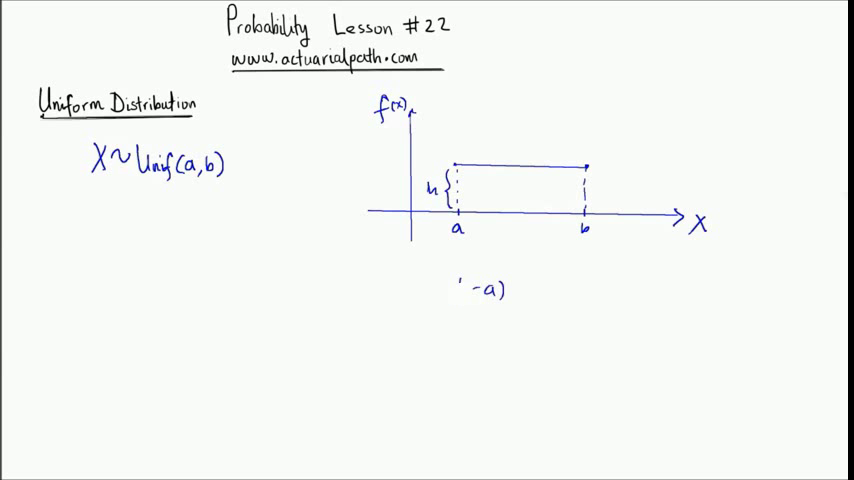 Probability Lesson #22
www.actuarialpath.com
Uniform Distribution
X~Unif(a,b)
f(x)
h
a
b
X
-a)